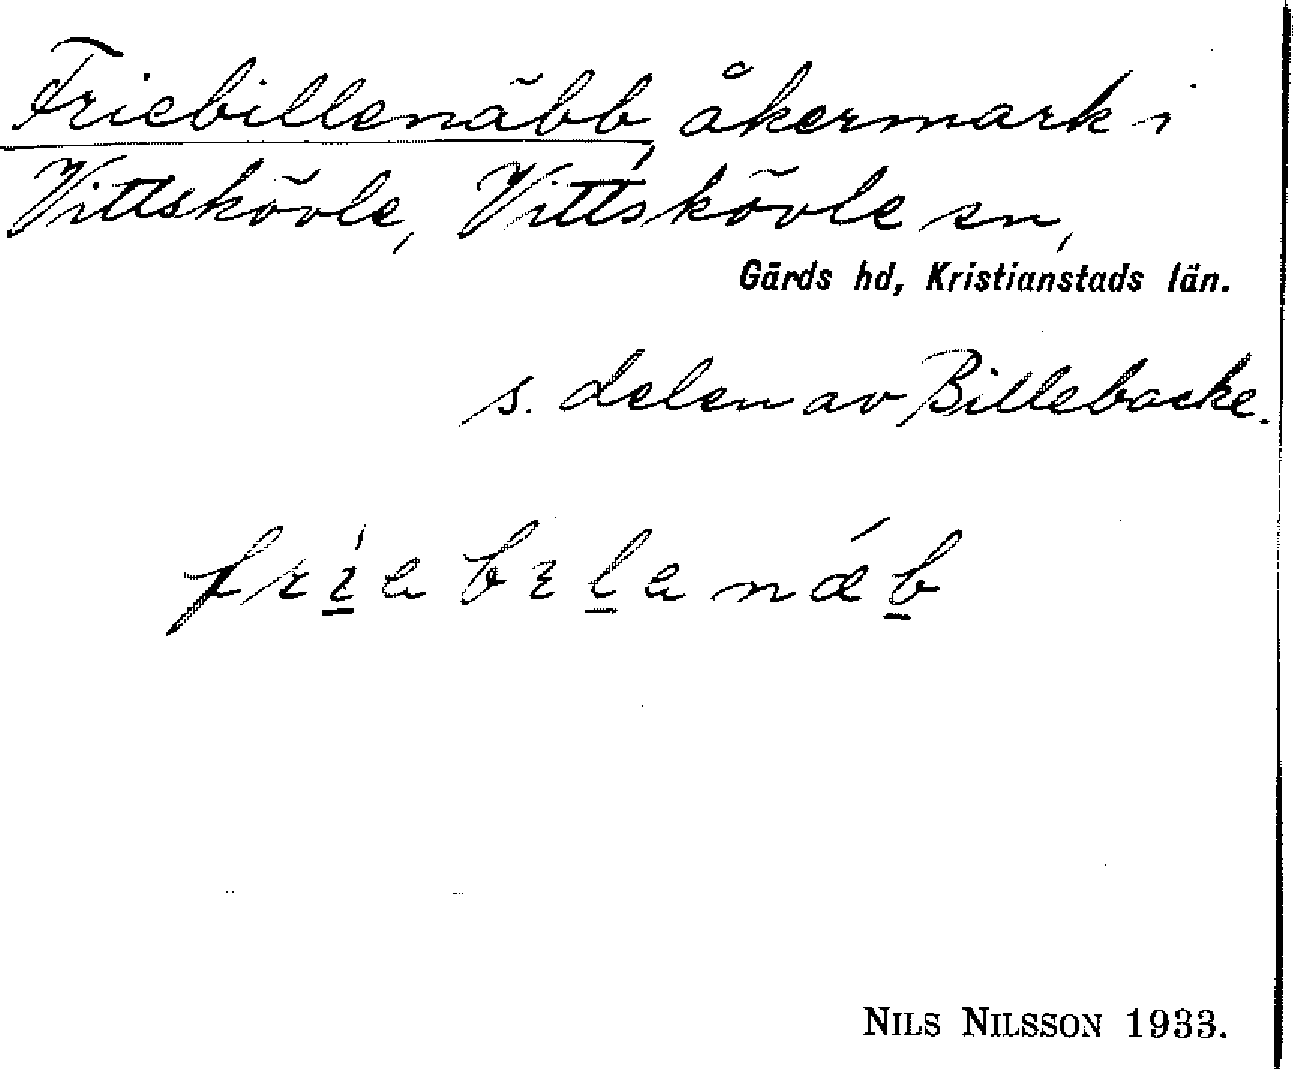 Friebillenäbb, åkermark i
Vittskövle, Vittskövle sn,
Gärds hd, Kristianstads län.
s. delen av Billebacke.
fríebɪlenǽb
NILS NILSSON 1933.